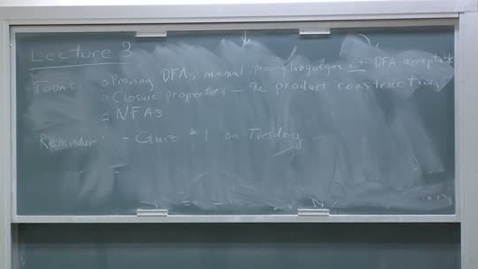 Lecture 3
TODAY: o Proving DFA, minimal, proving languages DFA
o Closure properties - the product construction
o NFAs
Reminder: - Quiz #1 on Tuesday